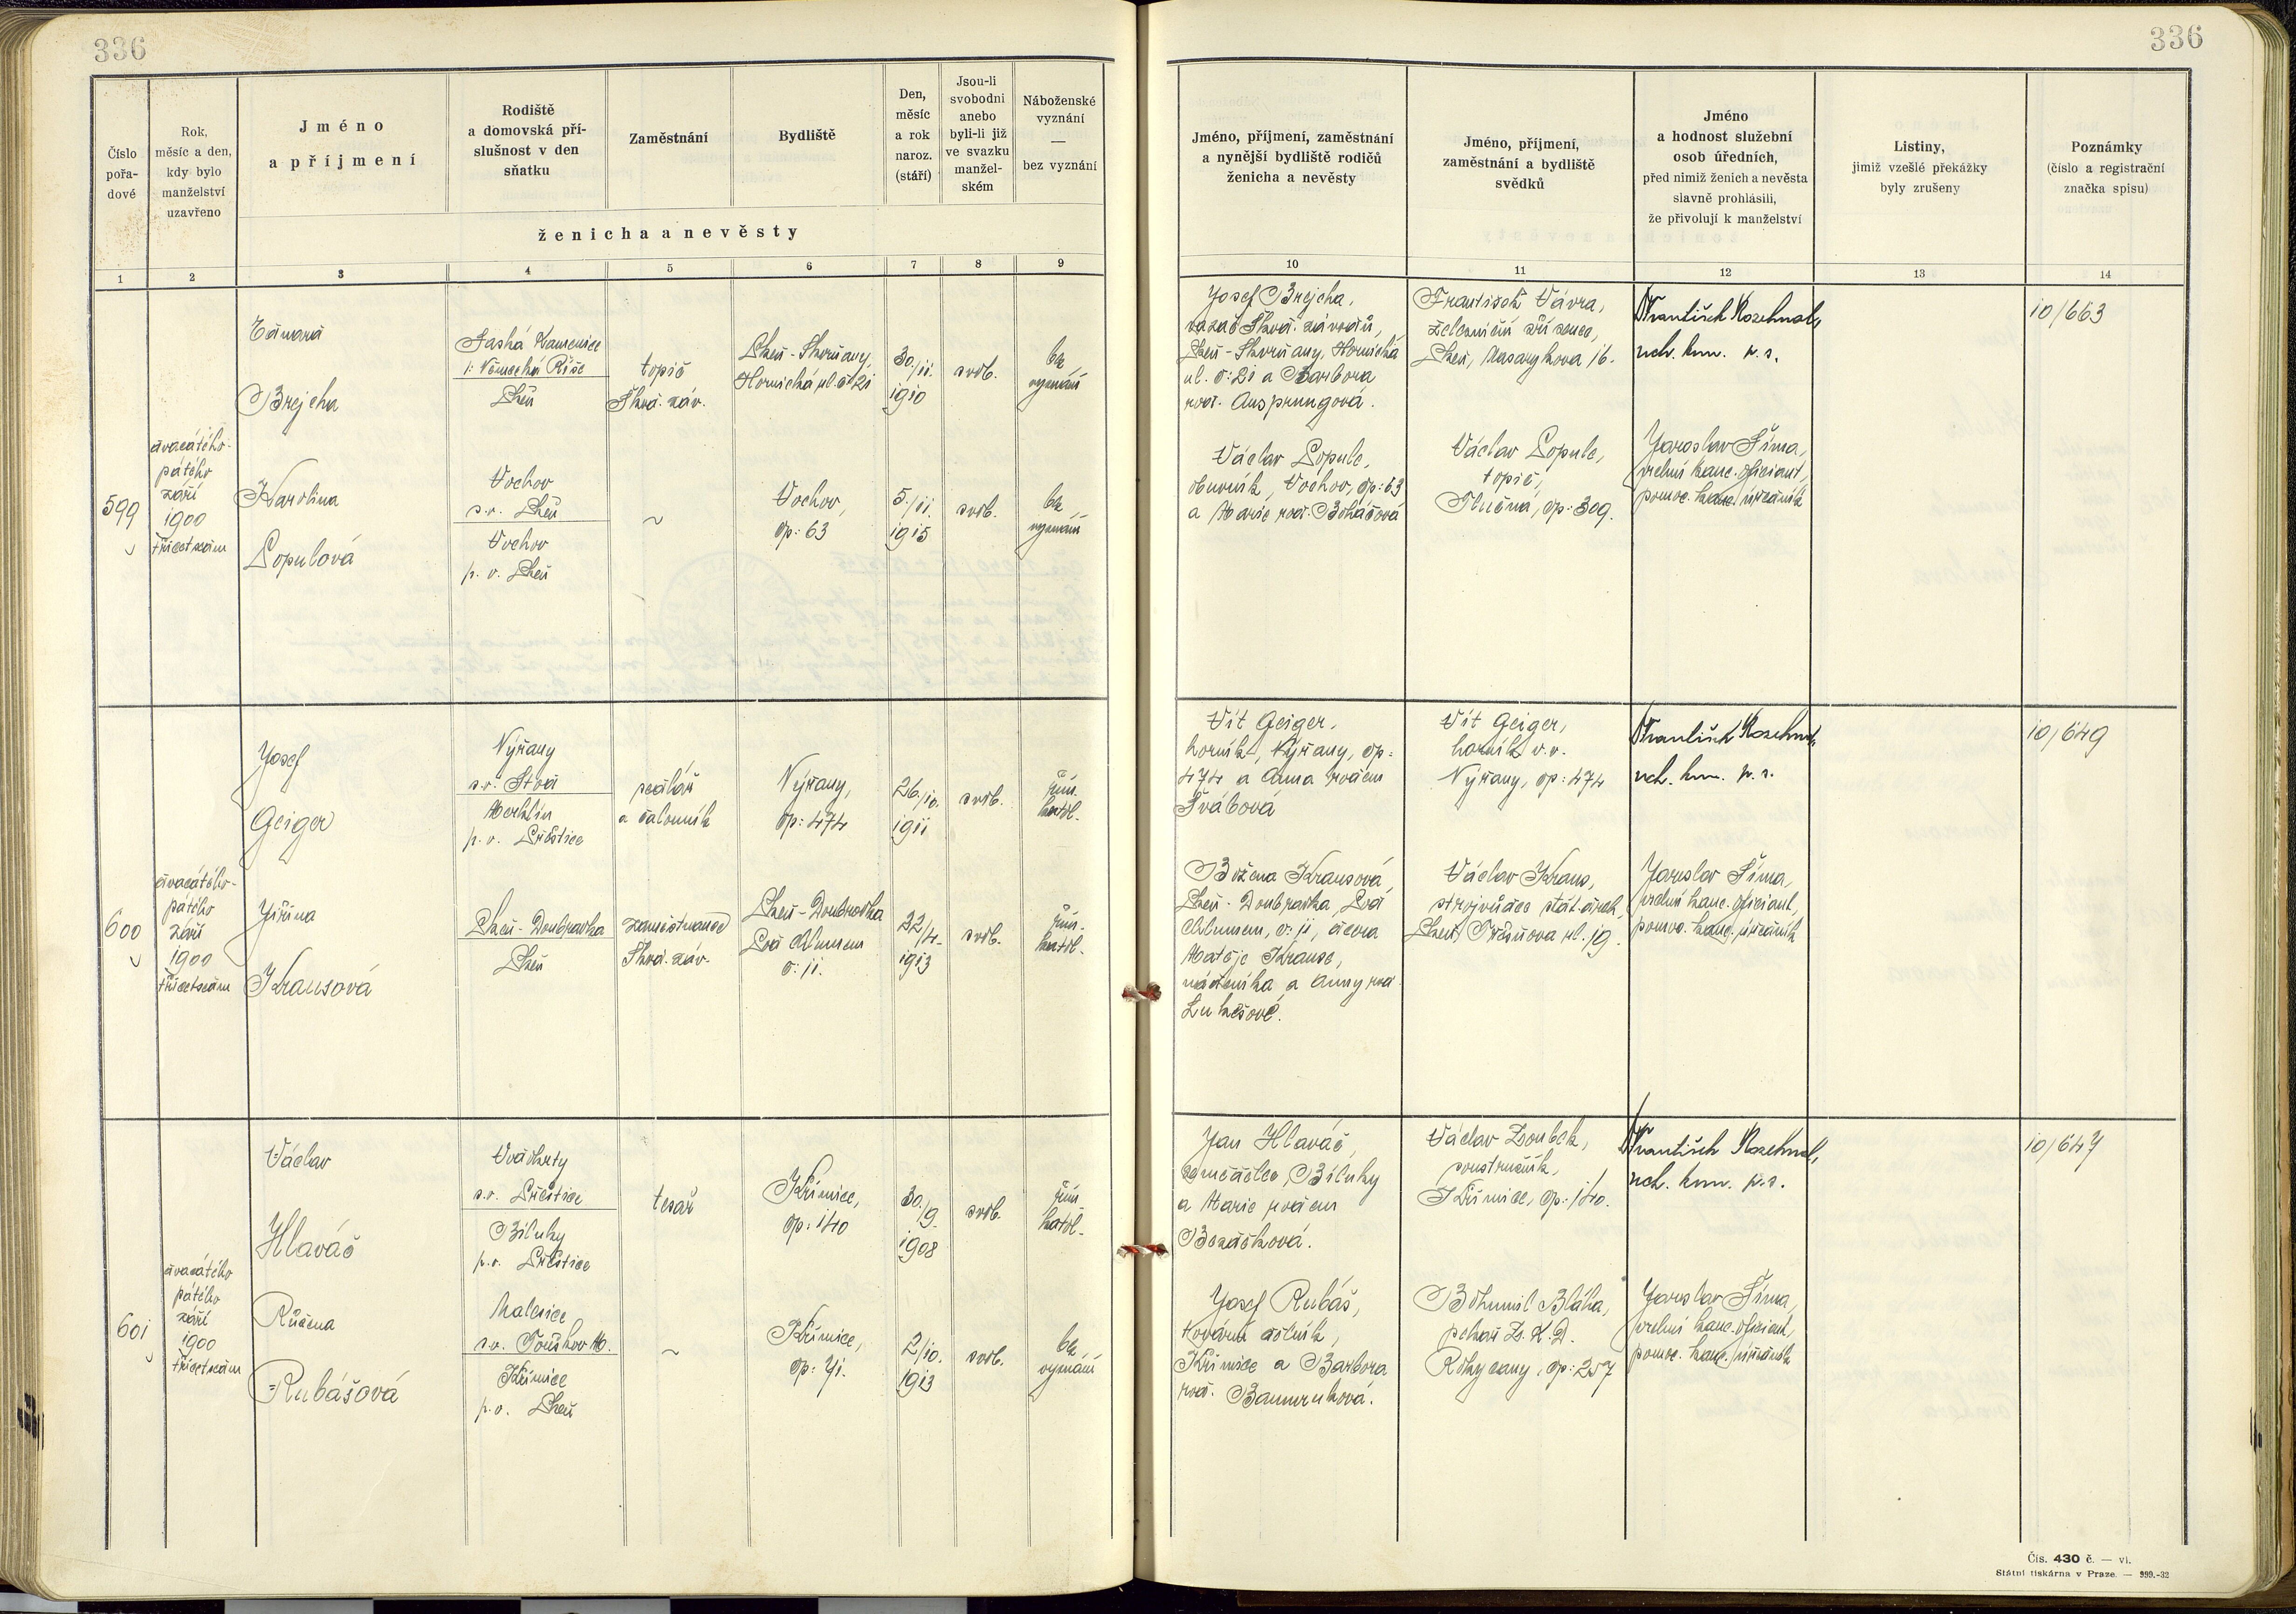 336
336
Číslo pořa- dové
Rok, měsíc a den, kdy bylo manželství uzavřeno
Jméno a příjmení
Rodiště a domovská pří- slušnost v den sňatku
Zaměstnání
Bydliště
Den, měsíc a rok naroz. (stáří)
Jsou-li svobodni anebo byli-li již ve svazku manžel- ském
Náboženské vyznání — bez vyznání
ženicha a nevěsty
Jméno, příjmení, zaměstnání a nynější bydliště rodičů ženicha a nevěsty
Jméno, příjmení, zaměstnání a bydliště svědků
Jméno a hodnost služební osob úředních, před nimiž ženich a nevěsta slavně prohlásili, že přivolují k manželství
Listiny, jimiž vzešlé překážky byly zrušeny
Poznámky (číslo a registrační značka spisu)
1 2 3 4 5 6 7 8 9 10 11 12 13 14
599
dvacátého-
pátého
září
1900
třicetsedm
Eduard
Brejcha
Saská Kamenice
/: Německá Říše
Plzeň
topič
Škod. záv.
Plzeň-Skvrňany,
Hornická ul. č. 21
30./11.
1910
svob.
bez
vyznání
Karolina
Populová
Vochov
s.o. Plzeň
Vochov
p. o. Plzeň
~
Vochov,
čp: 63
5./11.
1915
svob.
bez
vyznání
Josef Brejcha,
vazač Škod. závodů,
Plzeň-Skvrňany, Hornická
ul. č: 21 a Barbora
rod. Ausprungová.
Václav Popule,
obuvník, Vochov, čp: 63
a Marie rod. Boháčová
František Vávra,
železniční zřízenec,
Plzeň, Masarykova 16.
Václav Popule,
topič,
Tlučná, čp: 309.
František Rozehnal,
rch. kom. p. s.
Jaroslav Šíma,
vrchní kanc. oficiant,
pomoc. kanc. úředník
10/663
600
dvacátého-
pátého
září
1900
třicetsedm
Josef
Geiger
Nýřany
s.o. Stod
Merklín
p. o. Přeštice
sedlář
a čalouník
Nýřany,
čp: 474
26./10.
1911
svob.
řím.
katol.
Jiřina
Krausová
Plzeň-Doubravka
Plzeň
zaměstnanec
Škod. záv.
Plzeň-Doubravka
Pod Chlumem
č. 11.
22/4.
1913
svob.
řím.
katol.
Vít Geiger,
horník, Nýřany, čp:
474 a Anna rozen
Švábová
Božena Krausová,
Plzeň-Doubravka, Pod
Chlumem, č: 11, dcera
Matěje Krause,
nádeníka, a Anny rod.
Lukešové.
Vít Geiger,
horník v.v.
Nýřany, čp: 474
Václav Kraus,
strojvůdce stát. drah,
Plzeň, Tržnova ul. 19.
František Rozehnal,
rch. kom. p. s.
Jaroslav Šíma,
vrchní kanc. oficiant,
pomoc. kanc. úředník
10/649
601
dvacátého
pátého
září
1900
třicetsedm
Václav
Hlaváč
s.o. Přeštice
Bíluky
p.o. Přeštice
tesař
Křimice,
čp: 140
30./9.
1908
svob.
řím.
katol.
Růžena
Rubášová
Malesice
s.o. Touškov M.
Křimice
p.o. Plzeň
~
Křimice,
čp: 71.
2/10.
1913
svob.
bez
vyznání
Jan Hlaváč,
zemědělec, Bíluky
a Marie rozen
Bezděková.
Josef Rubáš,
tovární dělník,
Křimice a Barbora
rod. Baumruková.
Václav Zoubek,
soustružník,
Křimice, čp: 140.
Bohumil Bláha,
pekař Z. K. D.
Rokycany, čp: 257
František Rozehnal,
rch. kom. p.s.
Jaroslav Šíma,
vrchní kanc. oficiant,
pomoc. kanc. úředník
10/647
Čís. 430 č. — vl.
Státní tiskárna v Praze. — 999.-32